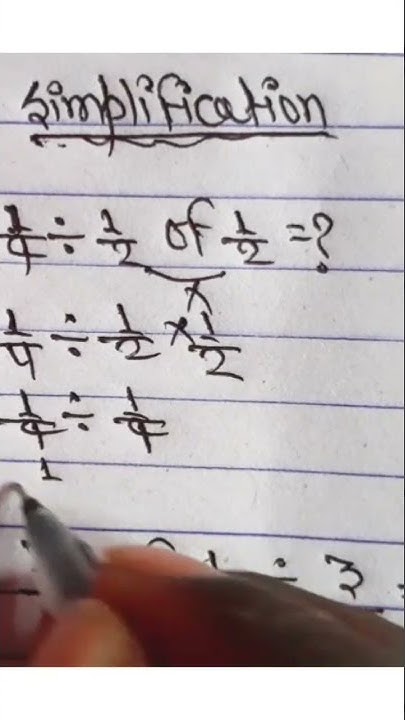 Simplification
1/4 ÷ 1/2 of 1/2 = ?
x
1/4 ÷ 1/2 × 1/2
1/4 ÷ 1/4
1
÷ 3